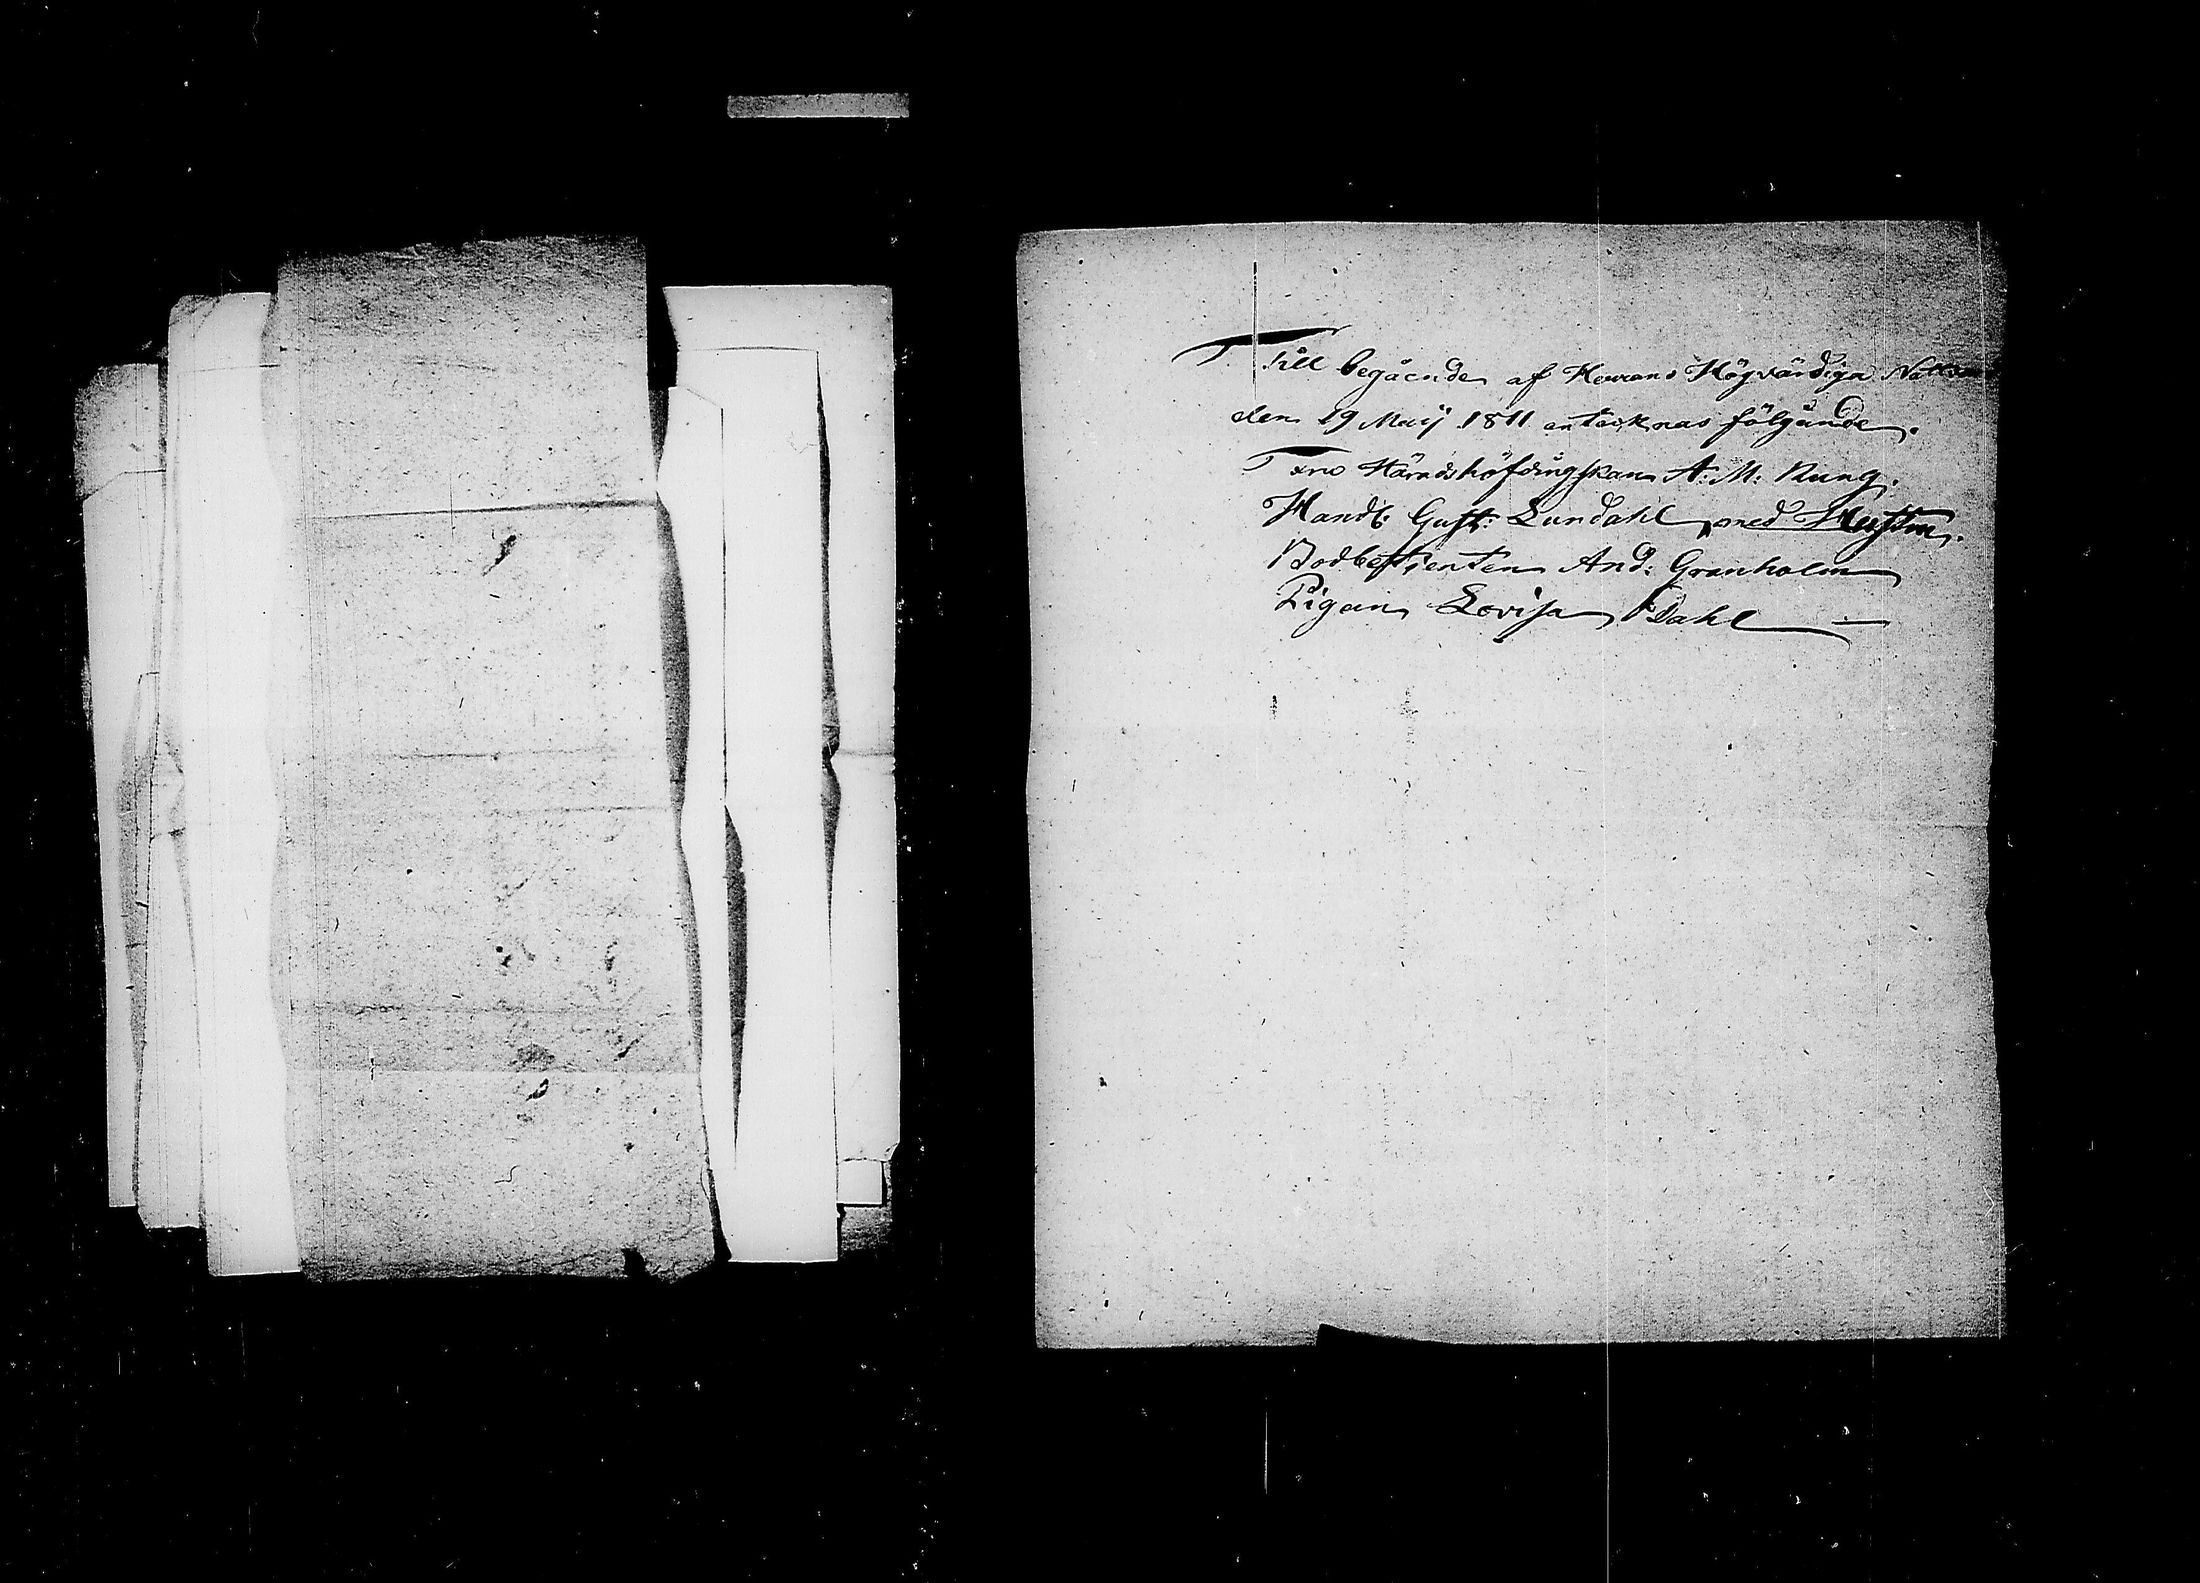 Till begående af Herrans Högvärdiga Nattv
den 19 Maij 1811 antecknas följande.
Häradshöfdingskan A: M: Rung.
Handl: Gust: Lundahl med Hustru.
Bodbetjenten And: Granholm
Pigan Lovisa Dahl